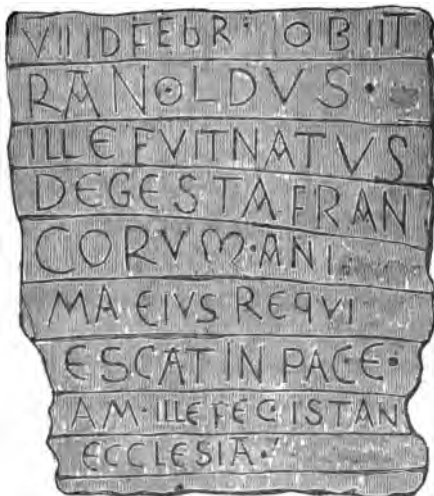 VIIIDFEbR· OBIIT
RANOLDVS·
ILLE FVIT NATVS
DEGESTA FRAN
CORVM·ANI
MA EIVS REQVI
ESCAT IN PACE·
AM·ILLE FECIISTAN
ECCLESIA·